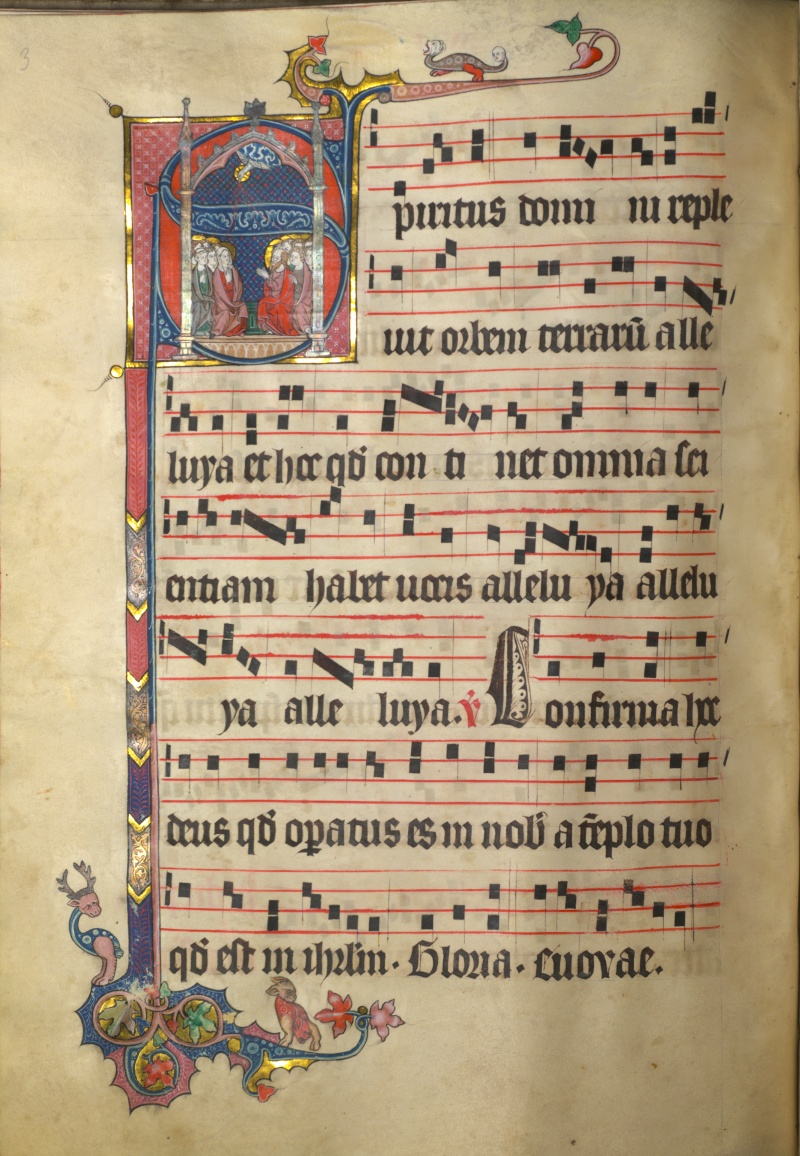 3
Spiritus domi ni reple
uit orbem terrarū alle
luya et hoc qđ con ti net omnia sci
entiam habet uocis allelu ya allelu
ya alle luya. ꝟ Confirma hoc
deus qđ opatus es in nob a tēplo tuo
qđ est in ihrlm̄. Gloria. euovae.